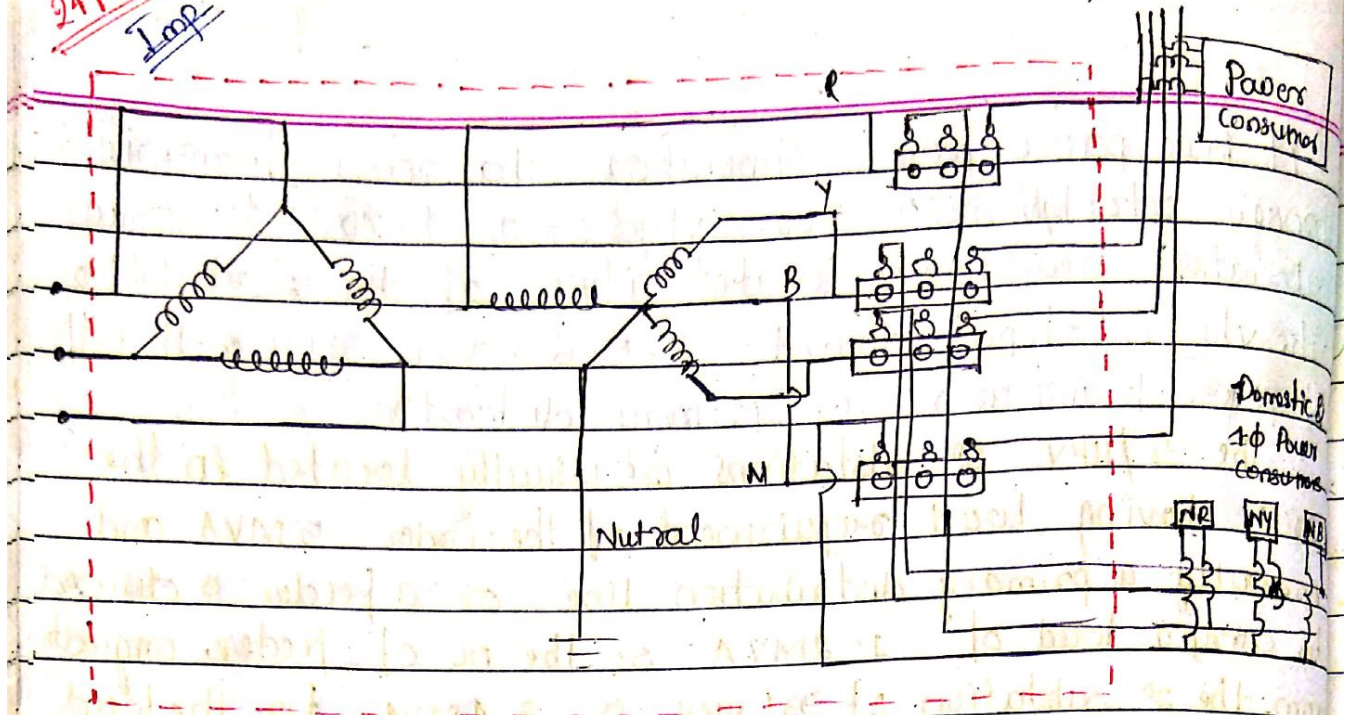 Imp
R
Power
Consumer
Y
B
N
Nutral
Domestic
1ϕ Power
Consumer
NR NY NB